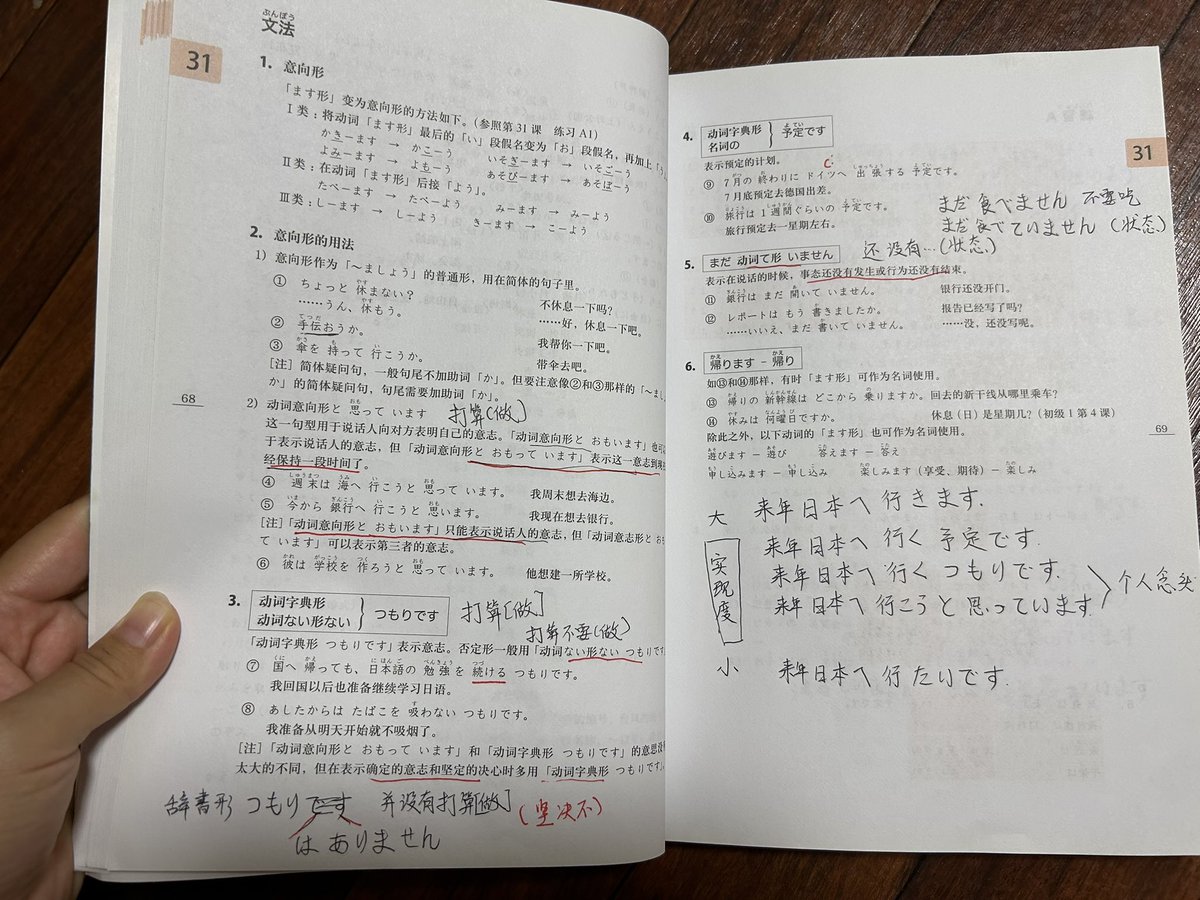 ぶんぽう
文法
31
1. 意向形
「ます形」变为意向形的方法如下。（参照第31课 练习A1）
Ⅰ类：将动词「ます形」最后的「い」段假名变为「お」段假名，再加上「う
かきーます → かこーう いそぎーます → いそごーう
よみーます → よもーう あそびーます → あそぼーう
Ⅱ类：在动词「ます形」后接「よう」。
たべーます → たべーよう みーます → みーよう
Ⅲ类：しーます → しーよう きーます → こーよう
2. 意向形的用法
1）意向形作为「～ましょう」的普通形，用在简体的句子里。
① ちょっと 休まない？ 不休息一下吗？
……うん、休もう。 ……好，休息一下吧。
② 手伝おうか。 我帮你一下吧。
③ 傘を 持って 行こうか。 带伞去吧。
［注］简体疑问句，一般句尾不加助词「か」。但要注意像②和③那样的「～まし
か」的简体疑问句，句尾需要加助词「か」。
68
2）动词意向形と 思って います 打算(做)
这一句型用于说话人向对方表明自己的意志。「动词意向形と おもいます」也可
于表示说话人的意志，但「动词意向形と おもって います」表示这一意志到现
经保持一段时间了。
④ 週末は 海へ 行こうと 思って います。 我周末想去海边。
⑤ 今から 銀行へ 行こうと 思います。 我现在想去银行。
［注］「动词意向形と おもいます」只能表示说话人的意志，但「动词意志形と お
て います」可以表示第三者的意志。
⑥ 彼は 学校を 作ろうと 思って います。 他想建一所学校。
3. 动词字典形
动词ない形ない
つもりです 打算[做]
打算不要(做)
「动词字典形 つもりです」表示意志。否定形一般用「动词ない形ない つもりです
⑦ 国へ 帰っても、日本語の 勉強を 続ける つもりです。
我回国以后也准备继续学习日语。
⑧ あしたからは たばこを 吸わない つもりです。
我准备从明天开始就不吸烟了。
［注］「动词意向形と おもって います」和「动词字典形 つもりです」的意思没
太大的不同，但在表示确定的意志和坚定的决心时多用「动词字典形 つもりです」。
辞書形 つもりです 并没有打算[做] (坚决不)
はありません
31
4. 动词字典形
名词の
予定です
表示预定的计划。
⑨ 7月の 終わりに ドイツへ 出張する 予定です。
7月底预定去德国出差。
⑩ 旅行は 1週間ぐらいの 予定です。
旅行预定去一星期左右。
まだ 食べません 不要吃
まだ 食べていません (状态)
5. まだ 动词て形 いません 还没有…(状态)
表示在说话的时候，事态还没有发生或行为还没有结束。
⑪ 銀行は まだ 開いて いません。 银行还没开门。
⑫ レポートは もう 書きましたか。 报告已经写了吗？
……いいえ、まだ 書いて いません。 ……没，还没写呢。
6. 帰ります－帰り
如⑬和⑭那样，有时「ます形」可作为名词使用。
⑬ 帰りの 新幹線は どこから 乗りますか。 回去的新干线从哪里乘车？
⑭ 休みは 何曜日ですか。 休息（日）是星期几？（初级1第4课）
69
除此之外，以下动词的「ます形」也可作为名词使用。
遊びます－遊び 答えます－答え
申し込みます－申し込み 楽しみます（享受、期待）－楽しみ
大 来年日本へ 行きます.
来年日本へ 行く 予定です.
实现度 来年日本へ 行く つもりです.
来年日本へ 行こうと 思っています 个人念头
小 来年日本へ 行たいです.